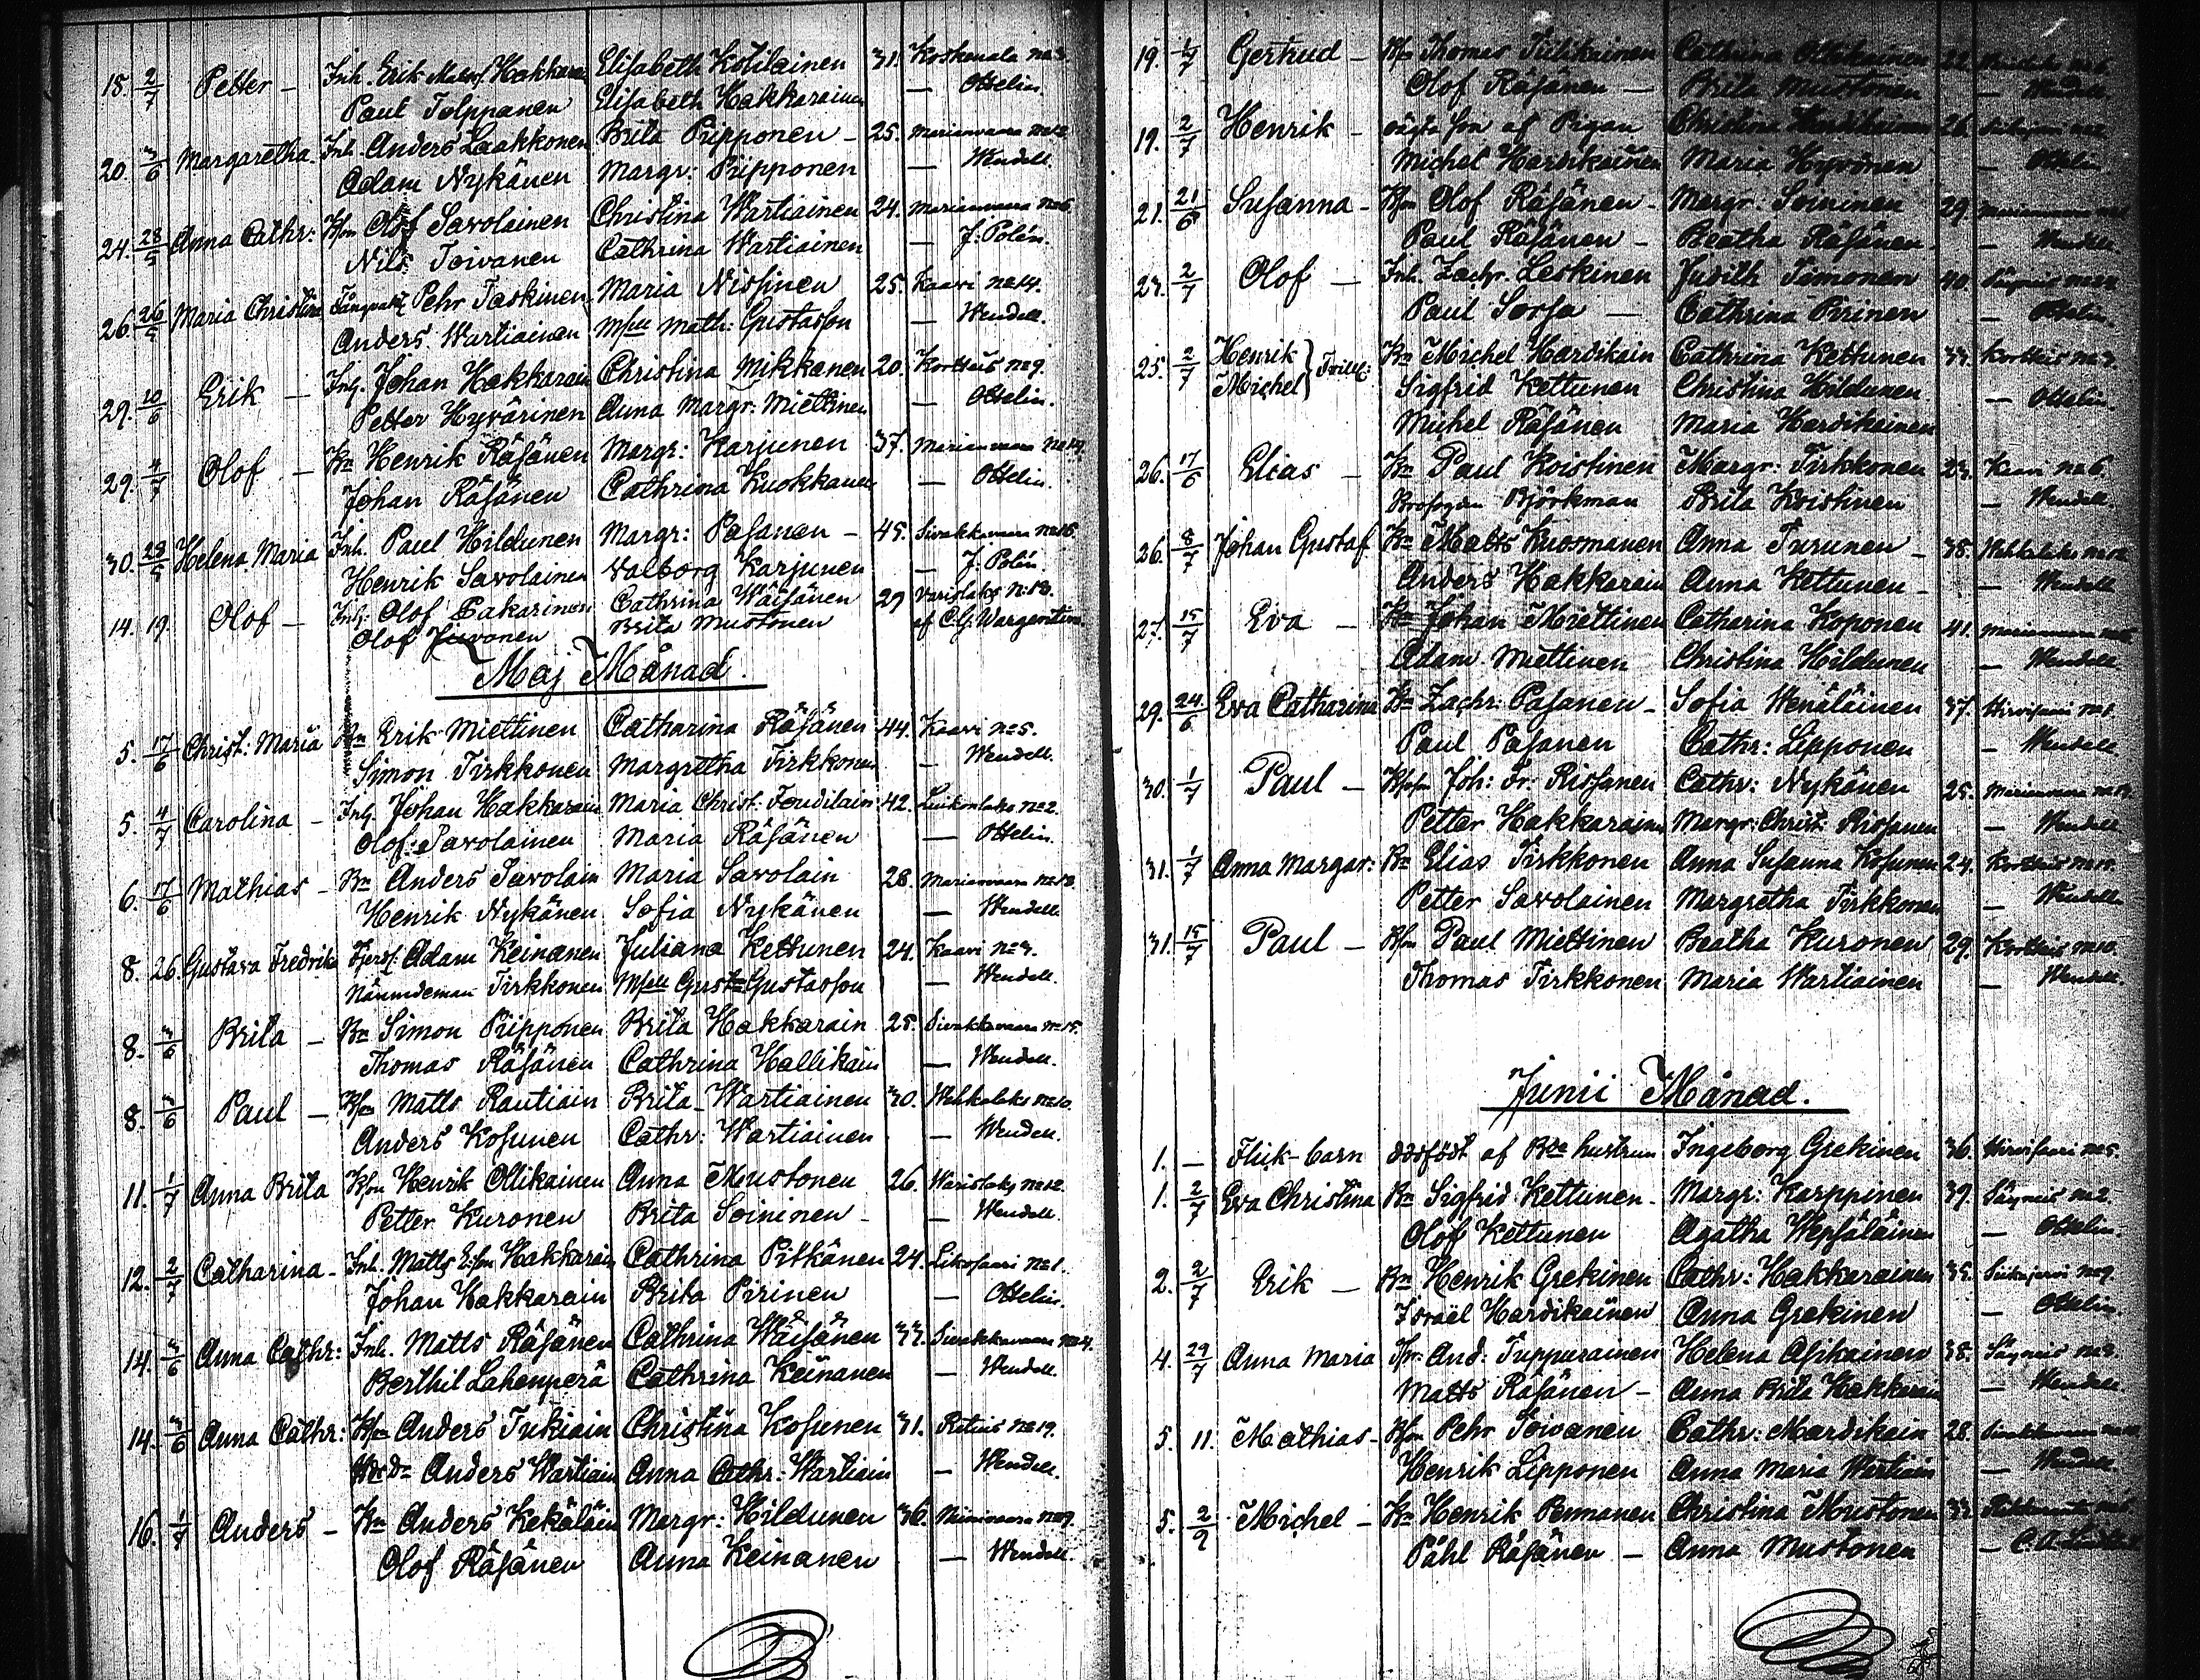 18. 2/7 Petter — Inh. Erik Matss. Hakkara Elisabeth Kotilainen 31. Koskenala No 3.
Paul Tolppanen Elisabeth Hakkarainen — Ottelin.
20. 3/6 Margaretha. Inh. Anders Laakkonen Brita Piipponen — 25. Marianvaara No 12.
Adam Nykänen Margr: Piipponen — Wendell.
24. 28/5 Anna Cathr: Bsn Olof Savolainen Christina Wartiainen 24. Marianvaara No 6.
Nils Toivanen Cathrina Wartiainen — J. Polén.
26. 26/5 Maria Christina Pehr Taskinen Maria Nissinen 25. Kaavi No 14.
Anders Wartiainen Msll Math: Gustafson — Wendell.
29. 10/6 Erik — Inh. Johan Hakkarain Christina Mikkanen 20. Kortteis No 9.
Petter Hyvärinen Anna Margr: Miettinen — Ottelin.
29. 4/7 Olof — Bn Henrik Räsänen Margr: Karjunen 37. Marianvaara No 14.
Johan Räsänen Cathrina Kuokkanen — Ottelin.
30. 28/5 Helena Maria Inh. Paul Hildunen Margr: Pasanen — 45. Sivakkavaara No 16.
Henrik Savolainen Walborg Karjunen — J. Polén.
14. 19. Olof — Inh. Olof Pakarinen Cathrina Wäisänen 29 Varislaks No 13.
Olof Juvonen Brita Mustonen af C.G. Wargentin.
Maj Månad.
5. 17/6 Christ: Maria Bn Erik Miettinen Catharina Räsänen 44. Kaavi No 5.
Simon Tirkkonen Margretha Tirkkonen — Wendell.
5. 4/7 Carolina — Inh. Johan Hakkarain Maria Christ. Toudilain 42. Luikonlaks No 2.
Olof Savolainen Maria Räsänen — Ottelin.
6. 17/6 Mathias — Bn Anders Savolain Maria Savolain 28. Marianvaara No 13.
Henrik Nykänen Sofia Nykänen — Wendell.
8. 26. Gustava Fredrika Adam Keinanen Juliana Kettunen 24. Kaavi No 3.
Nämndeman Tirkkonen Msll Gust: Gustafson — Wendell.
8. 3/6 Brita — Bn Simon Piipponen Brita Hakkarain 25. Sivakkavaara No 15.
Thomas Räsänen Cathrina Hallikain — Wendell.
8. 3/6 Paul — Bsn Matts Rautiain Brita Wartiainen 30. Wehkalaks No 10.
Anders Kosunen Cathr: Wartiainen — Wendell.
11. 1/7 Anna Brita Bsn Henrik Ollikainen Anna Mustonen 26. Warislaks No 12.
Petter Kuronen Brita Soininen — Wendell.
12. 2/7 Catharina — Inh. Matts Hakkarain Cathrina Pitkänen 24. Likosaari No 1.
Johan Hakkarain Brita Pirinen — Ottelin.
14. 3/6 Anna Cathr: Inh. Matts Räsänen Cathrina Wäisänen 33. Sivakkavaara No 4.
Berthil Lahenperä Cathrina Keinanen — Wendell.
14. 3/6 Anna Cathr: Bsn Anders Tukiain Christina Kosunen 31. Retuis No 19.
Anders Wartiain Anna Cathr: Wartiain — Wendell.
16. 1/7 Anders — Bn Anders Kekäläin Margr: Hildunen 36. Niinivaara No 7.
Olof Räsänen Anna Keinanen — Wendell.
19. 1/7 Gertrud — Bsn Thomas Tiilikainen Cathrina Ollikainen 22.
Olof Räsänen — Brita Mustonen — Wendell.
19. 2/7 Henrik — oägta son af Pigan Christina Hardikainen 26.
Michel Hardikainen Maria Hyvönen — Ottelin.
21. 21/6 Susanna — Bsn Olof Räsänen — Margr. Soininen 29. Marianvaara
Paul Räsänen — Beatha Räsänen. — Wendell.
23. 2/7 Olof — Inh. Zachr. Leskinen Judith Timonen 40. Säyneis
Paul Sorsa — Cathrina Piirinen — Ottelin.
25. 2/7 Henrik Michel } Tvill: Bn Michel Hardikain Cathrina Kettunen 33. Kortteis No 3.
Sigfrid Kettunen Christina Hildunen — Ottelin.
Michel Räsänen Maria Hardikainen
26. 17/6 Elias — Bn Paul Koistinen Margr: Tirkkonen 23. Kaavi No 6.
Björkman Brita Koistinen — Wendell.
26. 8/7 Johan Gustaf Bn Matts Kuosmanen Anna Turunen — 38. Wehkalaks
Anders Hakkarain Anna Kettunen — Wendell
27. 15/7 Eva — Bn Johan Miettinen Catharina Koponen 41. Marianvaara
Adam Miettinen Christina Hildunen — Wendell
29. 24/6 Eva Catharina Bn Zachr: Pasanen — Sofia Wenäläinen 37. Hirvisaari No 1.
Paul Pasanen Cathr: Lipponen — Wendell
30. 1/7 Paul — Joh: Fr: Rissanen Cathr: Nykänen 25. Marianvaara
Petter Hakkarainen Margr: Christ: Rissanen — Wendell
31. 1/7 Anna Margar: Bn Elias Tirkkonen Anna Susanna Kosunen 24. Kortteis
Petter Savolainen Margretha Tirkkonen — Wendell.
31. 15/7 Paul — Bsn Paul Miettinen Beatha Kuronen 29. Kortteis No 10.
Thomas Tirkkonen Maria Wartiainen — Wendell.
Junii Månad.
1. — Flick-barn dödfödt af Bde hustrun Ingeborg Grekinen 36. Hirvisaari No 5.
1. 2/7 Eva Christina Bn Sigfrid Kettunen — Margr: Karppinen 39. Säyneis No 2
Olof Kettunen Agatha Wepsäläinen — Ottelin.
2. 2/7 Erik — Bn Henrik Grekinen Cathr: Hakkarainen 35. Siikajervi No 9
Israël Hardikainen Anna Grekinen — Ottelin.
4. 29/7 Anna Maria And: Tuppurainen Helena Asikainen 38. Säyneis No 3.
Matts Räsänen — Anna Brita Hakkarain — Wendell.
5. 11. Mathias — Bsn Pehr Toivanen Cathr: Mardikain 28. Sivakkavaara
Henrik Lipponen Anna Maria Wartiain — Wendell.
5. 2/9 Michel — Bn Henrik Pennanen Christina Mustonen 33.
Påhl Räsänen — Anna Mustonen —